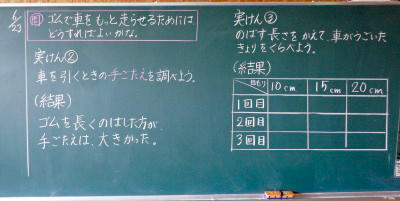 6/23
問 ゴムで車をもっと走らせるためには
どうすればよいかな。
実けん②
車を引くときの手ごたえを調べよう。
(結果)
ゴムを長くのばした方が、
手ごたえは、大きかった。
実けん③
のばす長さをかえて、車がうごいた
きょりをくらべよう。
(結果)
10cm 15cm 20cm
1回目
2回目
3回目